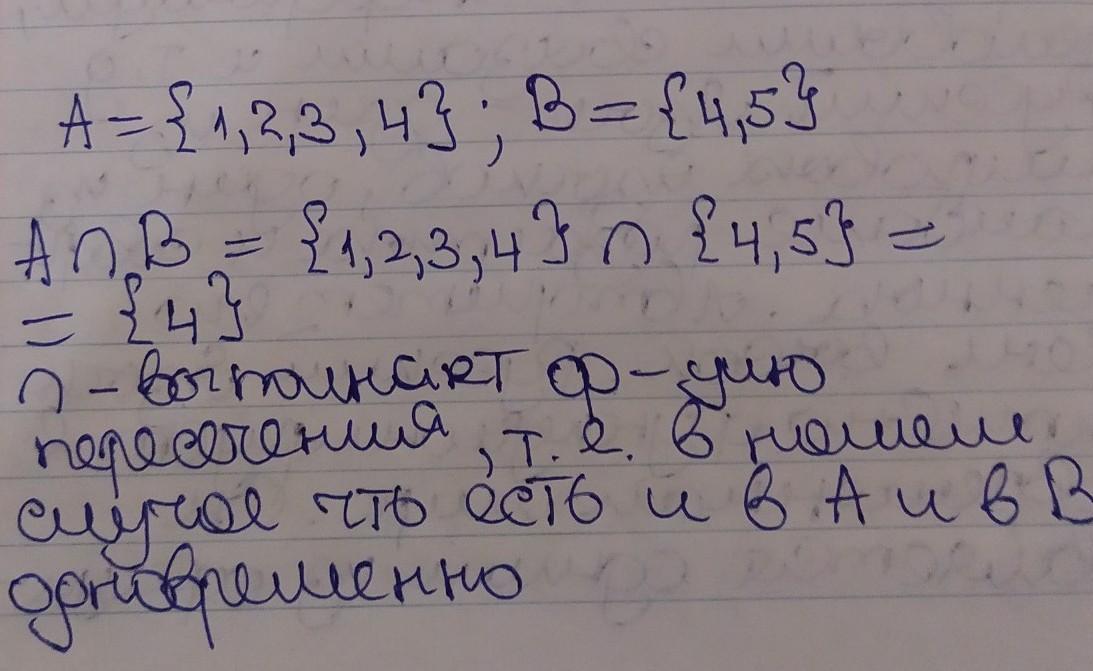 A = {1,2,3,4}; B = {4,5}
A ∩ B = {1,2,3,4} ∩ {4,5} =
= {4}
∩ - выполнают ф-цию
пересечения, т.е. в нашем
случае что есть и в А и в В
одновременно